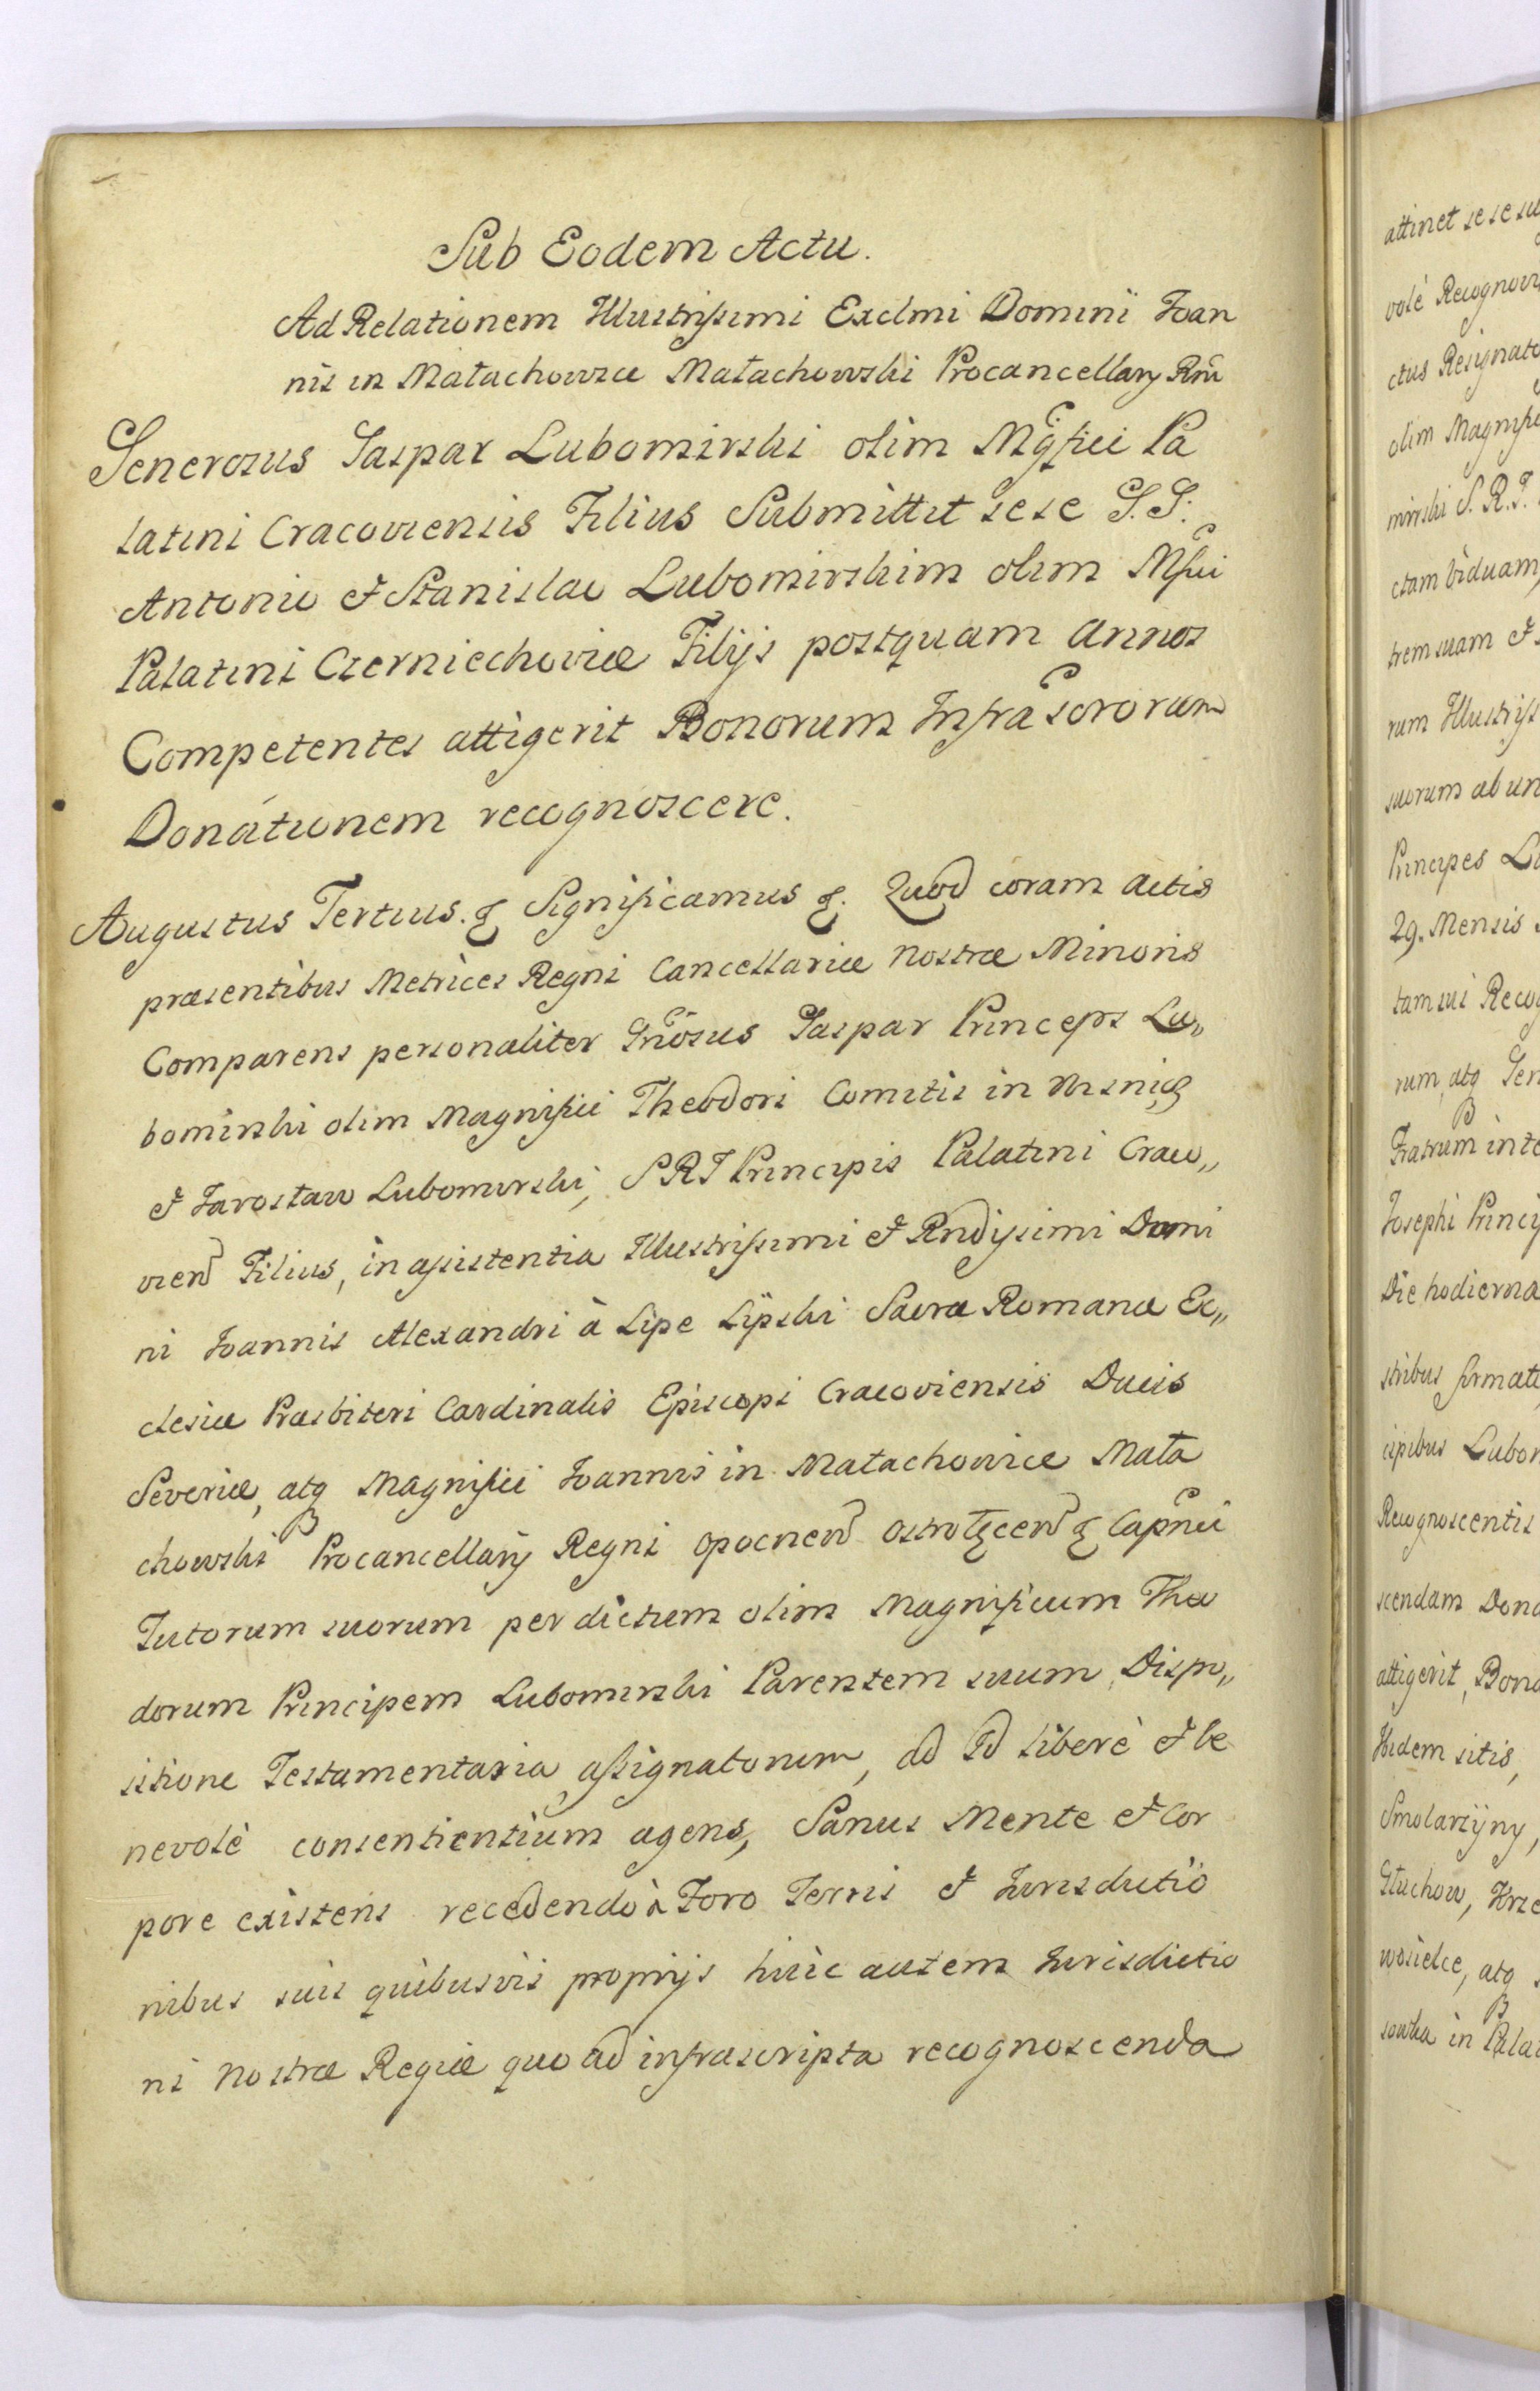 Sub Eodem Actu.
Ad Relationem Illustrissimi Exclmi Domini Ioan
nis in Małachowice Małachowski Procancellarÿ Rñi
Generosus Gaspar Lubomirski olim Mgfici Pa
latini Cracoviensis Filius Submittit sese G.G.
Antonio et Stanislao Lubomirskim olim Mfici
Palatini Czerniechoviæ Filijs postquam annos
Competentes attigerit Bonorum Infrascrorum
Donationem recognoscere.
Augustus Tertius. & Significamus &. Quod coram Actis
præsentibus Metrices Regni Cancellariæ Nostræ Minoris
Comparens personaliter Gnõsus Gaspar Princeps Lu„
bomirski olim Magnifici Theodori Comitis in Wisnicz
et Jarosław Lubomirski, S R I Principis Palatini Craco„
vien Filius, in assistentia Illustrissimi et Rndissimi Domi
ni Ioannis Alexandri à Lipe Lipski Sacræ Romanæ Ec„
clesiæ Præsbiteri Cardinalis Episcopi Cracoviensis Ducis
Severiæ, atq Magnifici Ioannis in Małachowice Mała
chowski Procancellarÿ Regni Opocnen Ostrołęcen & Capnei
Tutorum suorum per dictum olim Magnificum Theo
dorum Principem Lubomirski Parentem suum, Dispo„
sitione Testamentaria assignatorum, ad Id liberè et be
nevolè consentientium agens, Sanus Mente et Cor
pore existens recedendo à Foro Terris et Iurisdictio
nibus suis quibusvis proprijs huic autem Iurisdictio
ni Nostræ Regiæ quo ad infrascripta recognoscenda
attinet sese su
volè Recognovi
ctus Resignato
olim Magnifi
mirski S. R. I.
ctam biduam,
trem suam et
rum Illustriss
suorum ab un
Principes Lu
29. Mensis
tam sui Recog
rum, atq Gen
Fratrum inte
Iosephi Princi
Die hodierna
stribus firmati
cipibus Lubom
Recognoscentis
scendam Dona
attigerit, Bono
Ibidem sitis,
Smolarzÿny,
Głuchow, Krze
wosielce, atq
sowka in Pala